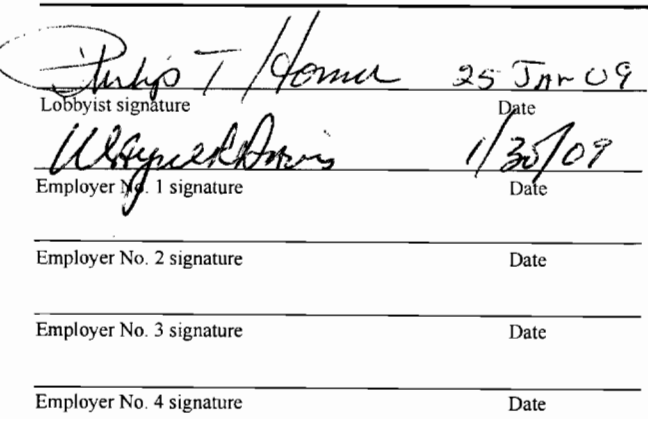 Philip T Homer 25 Jan 09
Lobbyist signature Date
Wayne R Davis 1/30/09
Employer No. 1 signature Date
Employer No. 2 signature Date
Employer No. 3 signature Date
Employer No. 4 signature Date